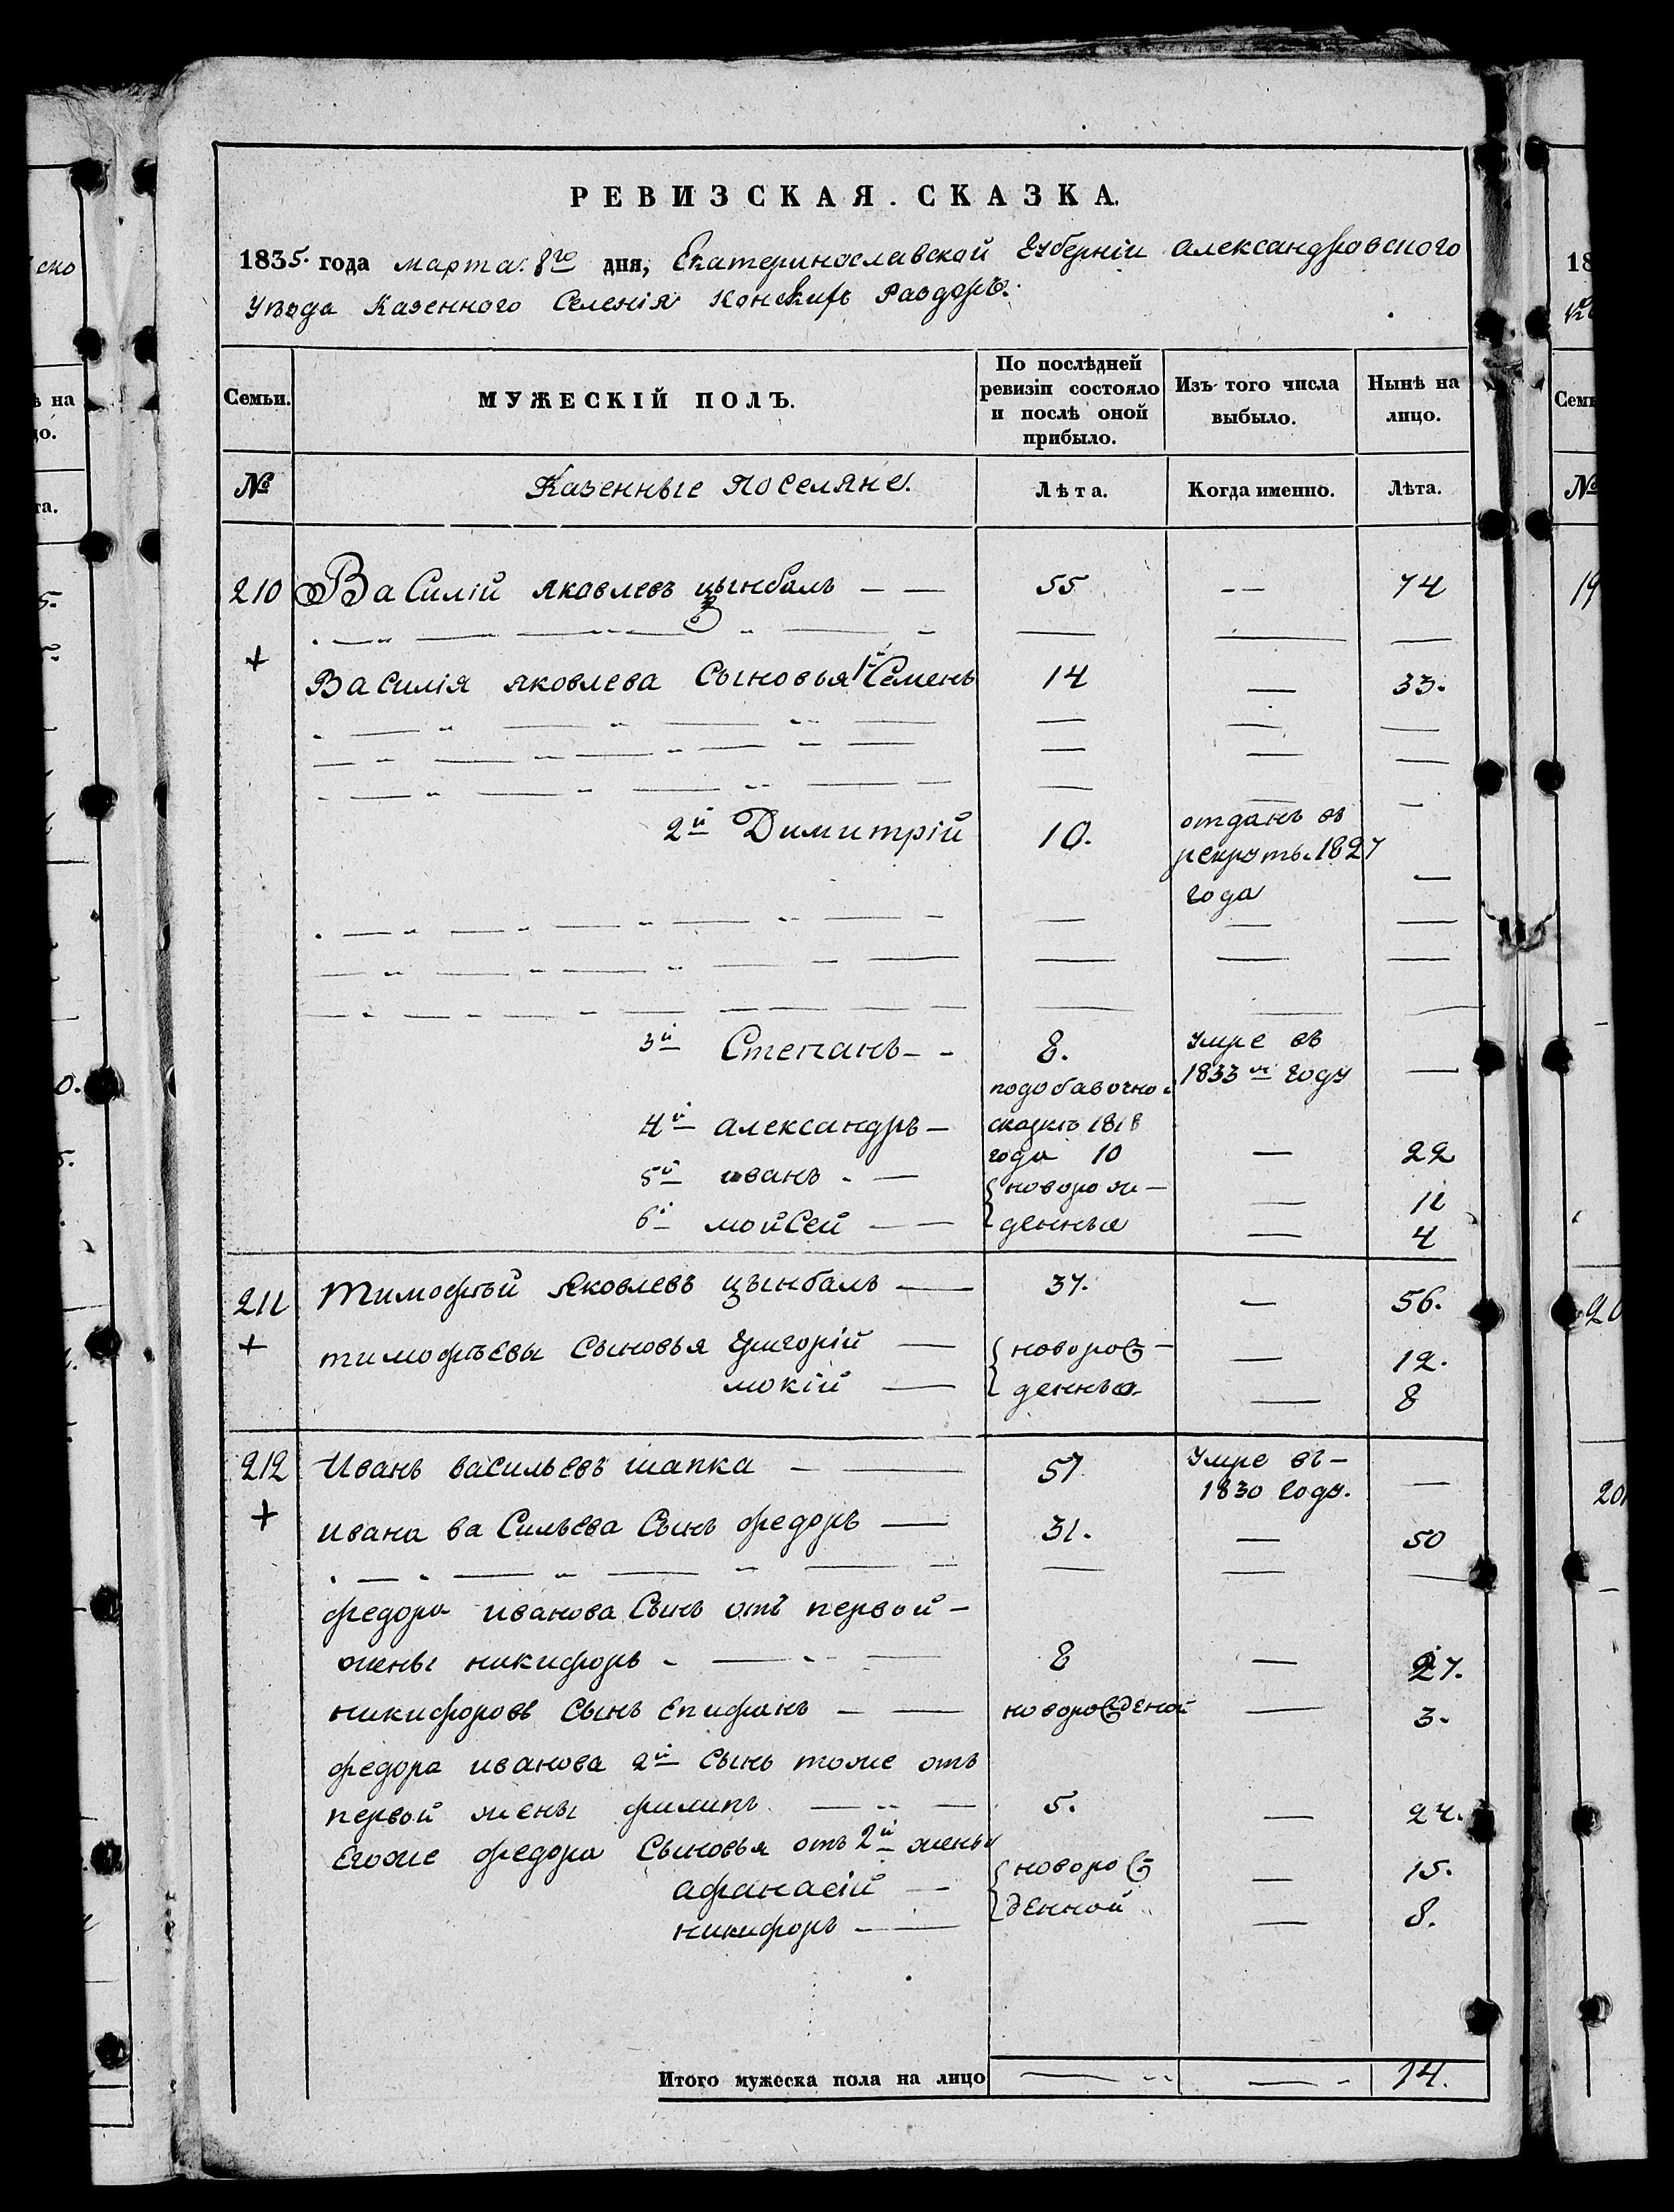 РЕВИЗСКАЯ. СКАЗКА.
1835. года марта. 8го дня, Екатеринославской Губерніи Александровского
Уѣзда Казенного Селенія Конскихъ Раздоръ.
Семьи.
МУЖЕСКІЙ ПОЛЪ.
По послѣдней ревизіи состояло и послѣ оной прибыло.
Изъ того числа выбыло.
Нынѣ на лицо.
№
Казенные поселяне.
Лѣта.
Когда именно.
Лѣта.
210 Василій Яковлевъ цынбалъ — — 55 -- 74
+
Василія Яковлева Сыновья 1й Семенъ 14 — 33.
2й Димитрій 10. отданъ въ
рекруты. 1827
года —
3й Степанъ - - 8. умре въ
1833м году —
4й александръ — подобавочно.
сказкѣ 1818
года 10 — 22
5й иванъ - — новорож — — 11
6й мойсей — — денные — 4
211 Тимофѣй Яковлевъ цынбалъ — 37. — 56.
+
тимофѣевы Сыновья Григорій — новорож - — 12.
мокій — денные — 8
212 Иванъ васильевъ шапка - — 57 умре въ —
1830 году. —
+
ивана васильева Сынъ федоръ — 31. — 50
федора иванова Сынъ отъ первой —
жены никифоръ - — 8 — 27.
никифоровъ Сынъ Епифанъ — — новорожденой — 3.
федора иванова 2й Сынъ тоже отъ
первой жены филипъ — 5. — 24.
Егоже федора Сыновья отъ 2й жены
афанасій — новорож — 15.
никифоръ — денной — 8.
Итого мужеска пола на лицо — — 14.
ско
ь на
цо.
та.
5.
0.
5.
18
Семь
№
19
20
20